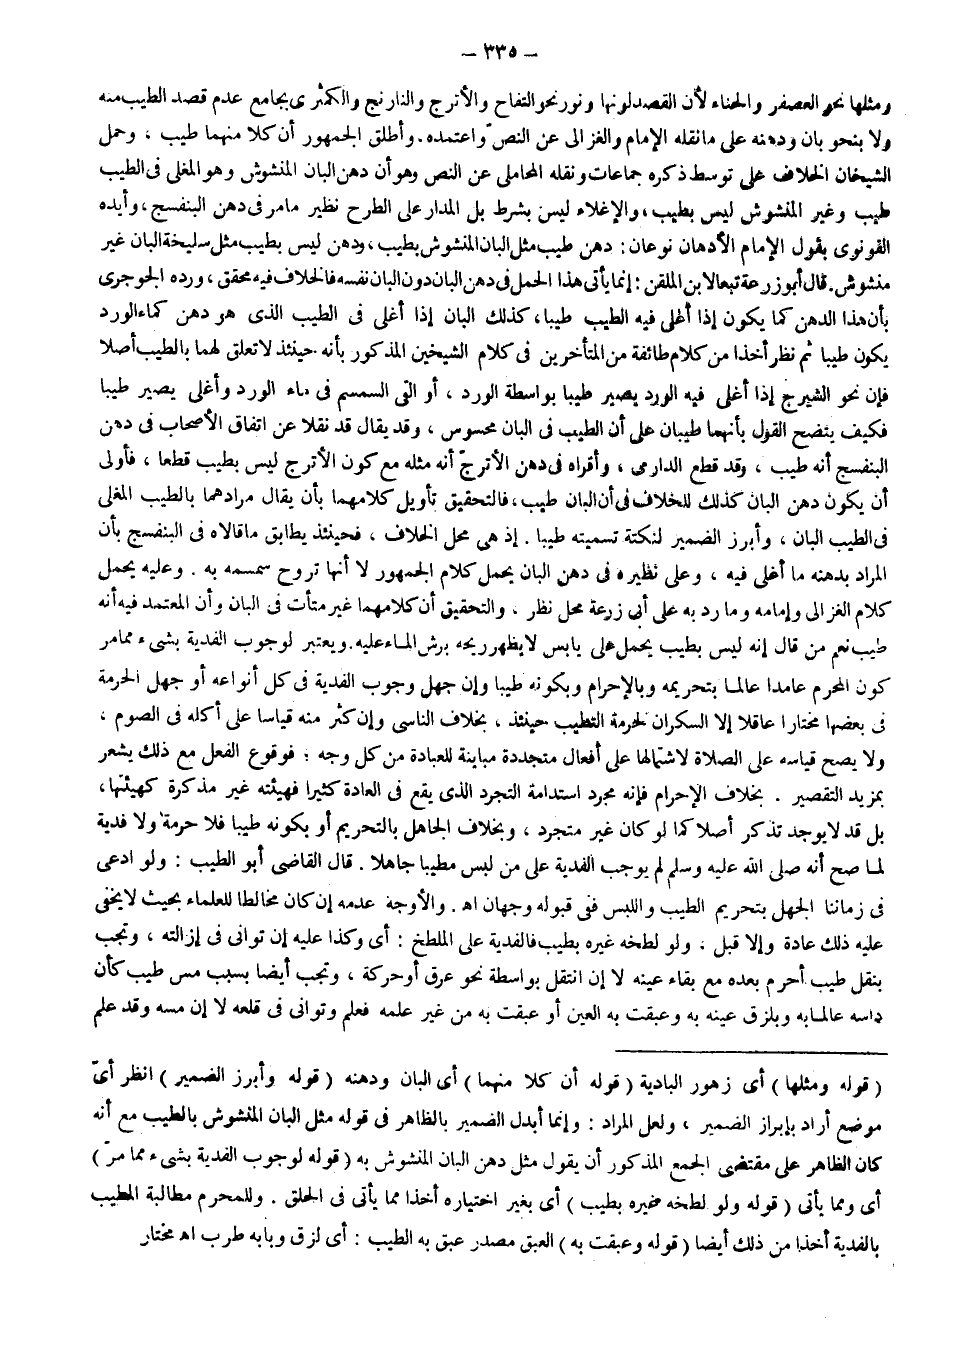 — ٣٣٥ —
ومثلها نحو العصفر والحناء لأن القصد لونها ونور نحو التفاح والأترج والنارنج والكمثرى بجامع عدم قصد الطيب منه
ولا بنحو بان ودهنه على مانقله الإمام والغزالى عن النص واعتمده. وأطلق الجمهور أن كلا منهما طيب ، وحمل
الشيخان الخلاف على توسط ذكره جماعات ونقله المحاملى عن النص وهو أن دهن البان المنشوش وهو المغلى فى الطيب
طيب وغير المنشوش ليس بطيب، والإغلاء ليس بشرط بل المدار على الطرح نظير مامر فى دهن البنفسج، وأيده
القونوى بقول الإمام الأدهان نوعان: دهن طيب مثل البان المنشوش بطيب، ودهن ليس بطيب مثل سليخة البان غير
منشوش. قال أبو زرعة تبعا لابن الملقن : إنما يأتى هذا الحمل فى دهن البان دون البان نفسه فالخلاف فيه محقق ، ورده الجوجرى
بأن هذا الدهن كما يكون إذا أغلى فيه الطيب طيبا، كذلك البان إذا أغلى فى الطيب الذى هو دهن كماء الورد
يكون طيبا ثم نظر أخذا من كلام طائفة من المتأخرين فى كلام الشيخين المذكور بأنه حينئذ لا تعلق لهما بالطيب أصلا
فإن نحو الشيرج إذا أغلى فيه الورد يصير طيبا بواسطة الورد ، أو التى السمسم فى ماء الورد وأغلى يصير طيبا
فكيف يتضح القول بأنهما طيبان على أن الطيب فى البان محسوس ، وقد يقال قد نقلا عن اتفاق الأصحاب فى دهن
البنفسج أنه طيب ، وقد قطع الدارمى ، وأقراه فى دهن الأترج أنه مثله مع كون الأترج ليس بطيب قطعا ، فأولى
أن يكون دهن البان كذلك للخلاف فى أن البان طيب، فالتحقيق تأويل كلامهما بأن يقال مرادهما بالطيب المغلى
فى الطيب البان ، وأبرز الضمير لنكتة تسميته طيبا . إذ هى محل الخلاف ، فحينئذ يطابق ماقالاه فى البنفسج بأن
المراد بدهنه ما أغلى فيه ، وعلى نظيره فى دهن البان يحمل كلام الجمهور لا أنها تروح سمسمه به . وعليه يحمل
كلام الغزالى وإمامه وما رد به على أبى زرعة محل نظر ، والتحقيق أن كلامهما غير متأت فى البان وأن المعتمد فيه أنه
طيب نعم من قال إنه ليس بطيب يحمل على يابس لا يظهر ريحه برش الماء عليه. ويعتبر لوجوب الفدية بشىء مما مر
كون المحرم عامدا عالما بتحريمه وبالإحرام وبكونه طيبا وإن جهل وجوب الفدية فى كل أنواعه أو جهل الحرمة
فى بعضها مختارا عاقلا إلا السكران لحرمة التطيب حينئذ ، بخلاف الناسى وإن كثر منه قياسا على أكله فى الصوم ،
ولا يصح قياسه على الصلاة لاشتمالها على أفعال متجددة مباينة للعبادة من كل وجه : فوقوع الفعل مع ذلك يشعر
بمزيد التقصير . بخلاف الإحرام فإنه مجرد استدامة التجرد الذى يقع فى العادة كثيرا فهيئته غير مذكرة كهيئتها،
بل قد لا يوجد تذكر أصلا كما لو كان غير متجرد ، وبخلاف الجاهل بالتحريم أو بكونه طيبا فلا حرمة ولا فدية
لما صح أنه صلى الله عليه وسلم لم يوجب الفدية على من لبس مطيبا جاهلا . قال القاضى أبو الطيب : ولو ادعى
فى زماننا الجهل بتحريم الطيب واللبس ففى قبوله وجهان اه . والأوجه عدمه إن كان مخالطا للعلماء بحيث لا يخفى
عليه ذلك عادة وإلا قبل ، ولو لطخه غيره بطيب فالفدية على الملطخ : أى وكذا عليه إن توانى فى إزالته ، وتجب
بنقل طيب أحرم بعده مع بقاء عينه لا إن انتقل بواسطة نحو عرق أو حركة ، وتجب أيضا بسبب مس طيب كأن
داسه عالما به وبلزق عينه به وعبقت به العين أو عبقت به من غير علمه فعلم وتوانى فى قلعه لا إن مسه وقد علم
( قوله ومثلها ) أى زهور البادية ( قوله أن كلا منهما ) أى البان ودهنه ( قوله وأبرز الضمير ) انظر أىّ
موضع أراد بإبراز الضمير ، ولعل المراد : وإنما أبدل الضمير بالظاهر فى قوله مثل البان المنشوش بالطيب مع أنه
كان الظاهر على مقتضى الجمع المذكور أن يقول مثل دهن البان المنشوش به ( قوله لوجوب الفدية بشىء مما مرّ )
أى ومما يأتى ( قوله ولو لطخه غيره بطيب ) أى بغير اختياره أخذا مما يأتى فى الحلق . وللمحرم مطالبة المطيب
بالفدية أخذا من ذلك أيضا ( قوله وعبقت به ) العبق مصدر عبق به الطيب : أى لزق وبابه طرب اه مختار